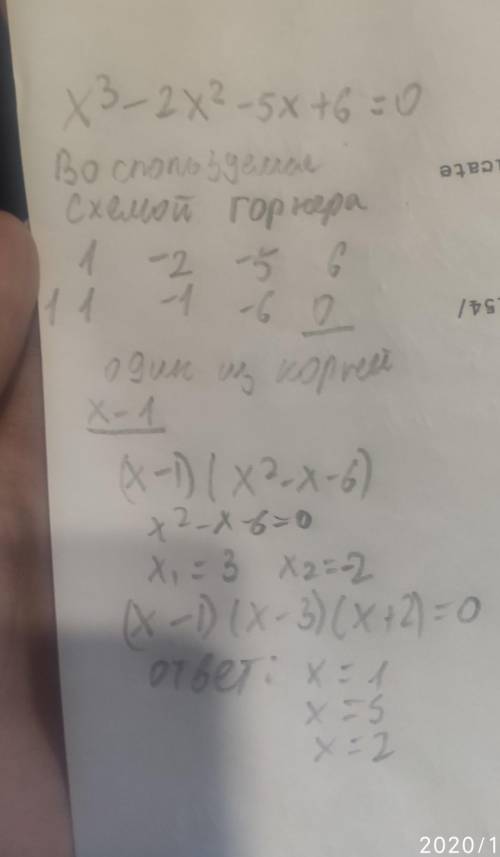 x³-2x²-5x+6=0
Воспользуемся
схемой горнера
1 -2 -5 6
1 1 -1 -6 0
один из корней
x-1
(x-1)(x²-x-6)
x²-x-6=0
x₁=3 x₂=-2
(x-1)(x-3)(x+2)=0
ответ: x=1
x=5
x=2
cate
.54/
2020/1